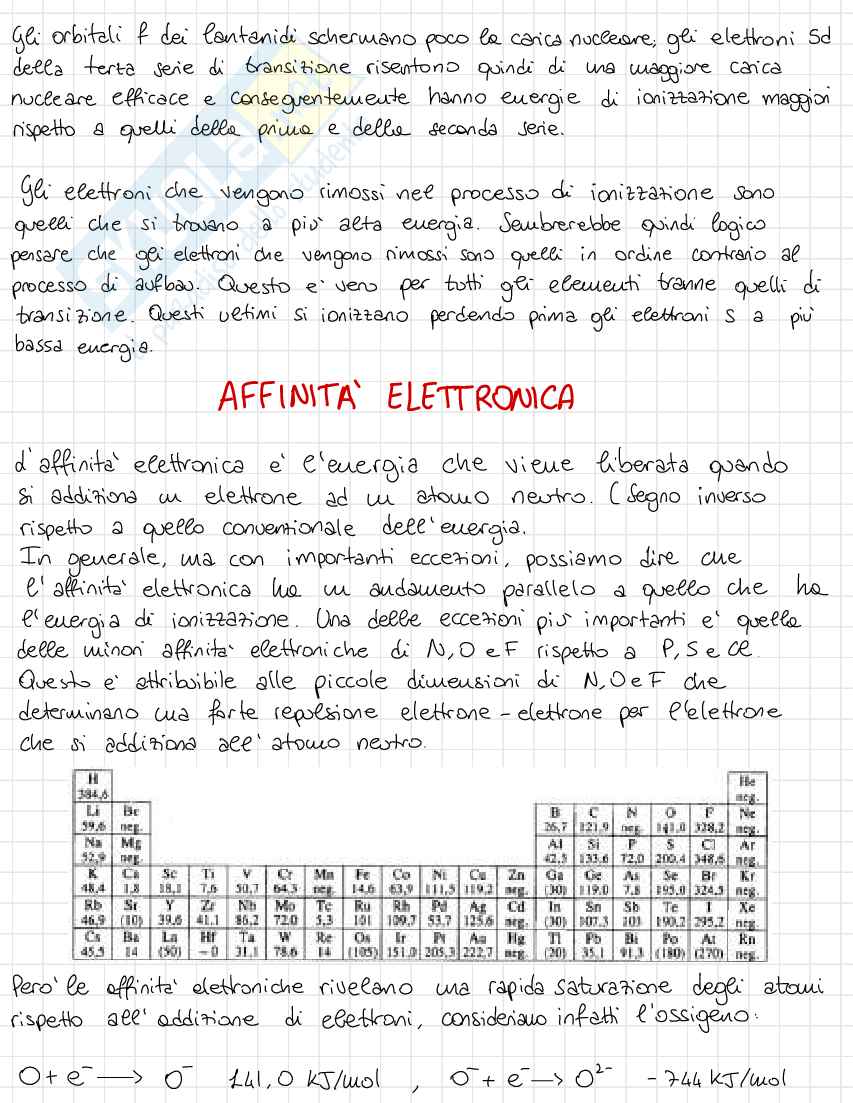 Gli orbitali f dei lantanidi schermano poco la carica nucleare, gli elettroni 5d
della terza serie di transizione risentono quindi di una maggiore carica
nucleare efficace e conseguentemente hanno energie di ionizzazione maggiori
rispetto a quelli della prima e della seconda serie.
Gli elettroni che vengono rimossi nel processo di ionizzazione sono
quelli che si trovano a più alta energia. Sembrerebbe quindi logico
pensare che gli elettroni che vengono rimossi sono quelli in ordine contrario al
processo di aufbau. Questo e' vero per tutti gli elementi tranne quelli di
transizione. Questi ultimi si ionizzano perdendo prima gli elettroni s a più
bassa energia.
AFFINITA' ELETTRONICA
L'affinita' elettronica e' l'energia che viene liberata quando
si addiziona un elettrone ad un atomo neutro. (Segno inverso
rispetto a quello convenzionale dell'energia.
In generale, ma con importanti eccezioni, possiamo dire che
l'affinita' elettronica ha un andamento parallelo a quello che ha
l'energia di ionizzazione. Una delle eccezioni più importanti e' quella
delle minori affinita' elettroniche di N, O e F rispetto a P, S e Cl.
Questo e' attribuibile alle piccole dimensioni di N, O e F che
determinano una forte repulsione elettrone-elettrone per l'elettrone
che si addiziona all'atomo neutro.
H He
384,6 neg.
Li Be B C N O F Ne
59,6 neg. 26,7 121,9 neg. 141,0 328,2 neg.
Na Mg Al Si P S Cl Ar
52,9 neg. 42,5 133,6 72,0 200,4 348,6 neg.
K Ca Sc Ti V Cr Mn Fe Co Ni Cu Zn Ga Ge As Se Br Kr
48,4 1,8 18,1 7,6 50,7 64,3 neg. 14,6 63,9 111,5 119,2 neg. (30) 119,0 7,8 195,0 324,5 neg.
Rb Sr Y Zr Nb Mo Tc Ru Rh Pd Ag Cd In Sn Sb Te I Xe
46,9 (10) 39,6 41,1 86,2 72,0 5,3 101 109,7 53,7 125,6 neg. (30) 107,3 103 190,2 295,2 neg.
Cs Ba La Hf Ta W Re Os Ir Pt Au Hg Tl Pb Bi Po At Rn
45,5 14 (50) ~0 31,1 78,6 14 (105) 151,0 205,3 222,7 neg. (20) 35,1 91,3 (180) (270) neg.
Pero' le affinita' elettroniche rivelano una rapida saturazione degli atomi
rispetto all'addizione di elettroni, consideriamo infatti l'ossigeno:
O + e⁻ → O⁻ 141,0 KJ/mol , O⁻ + e⁻ → O²⁻ -744 KJ/mol